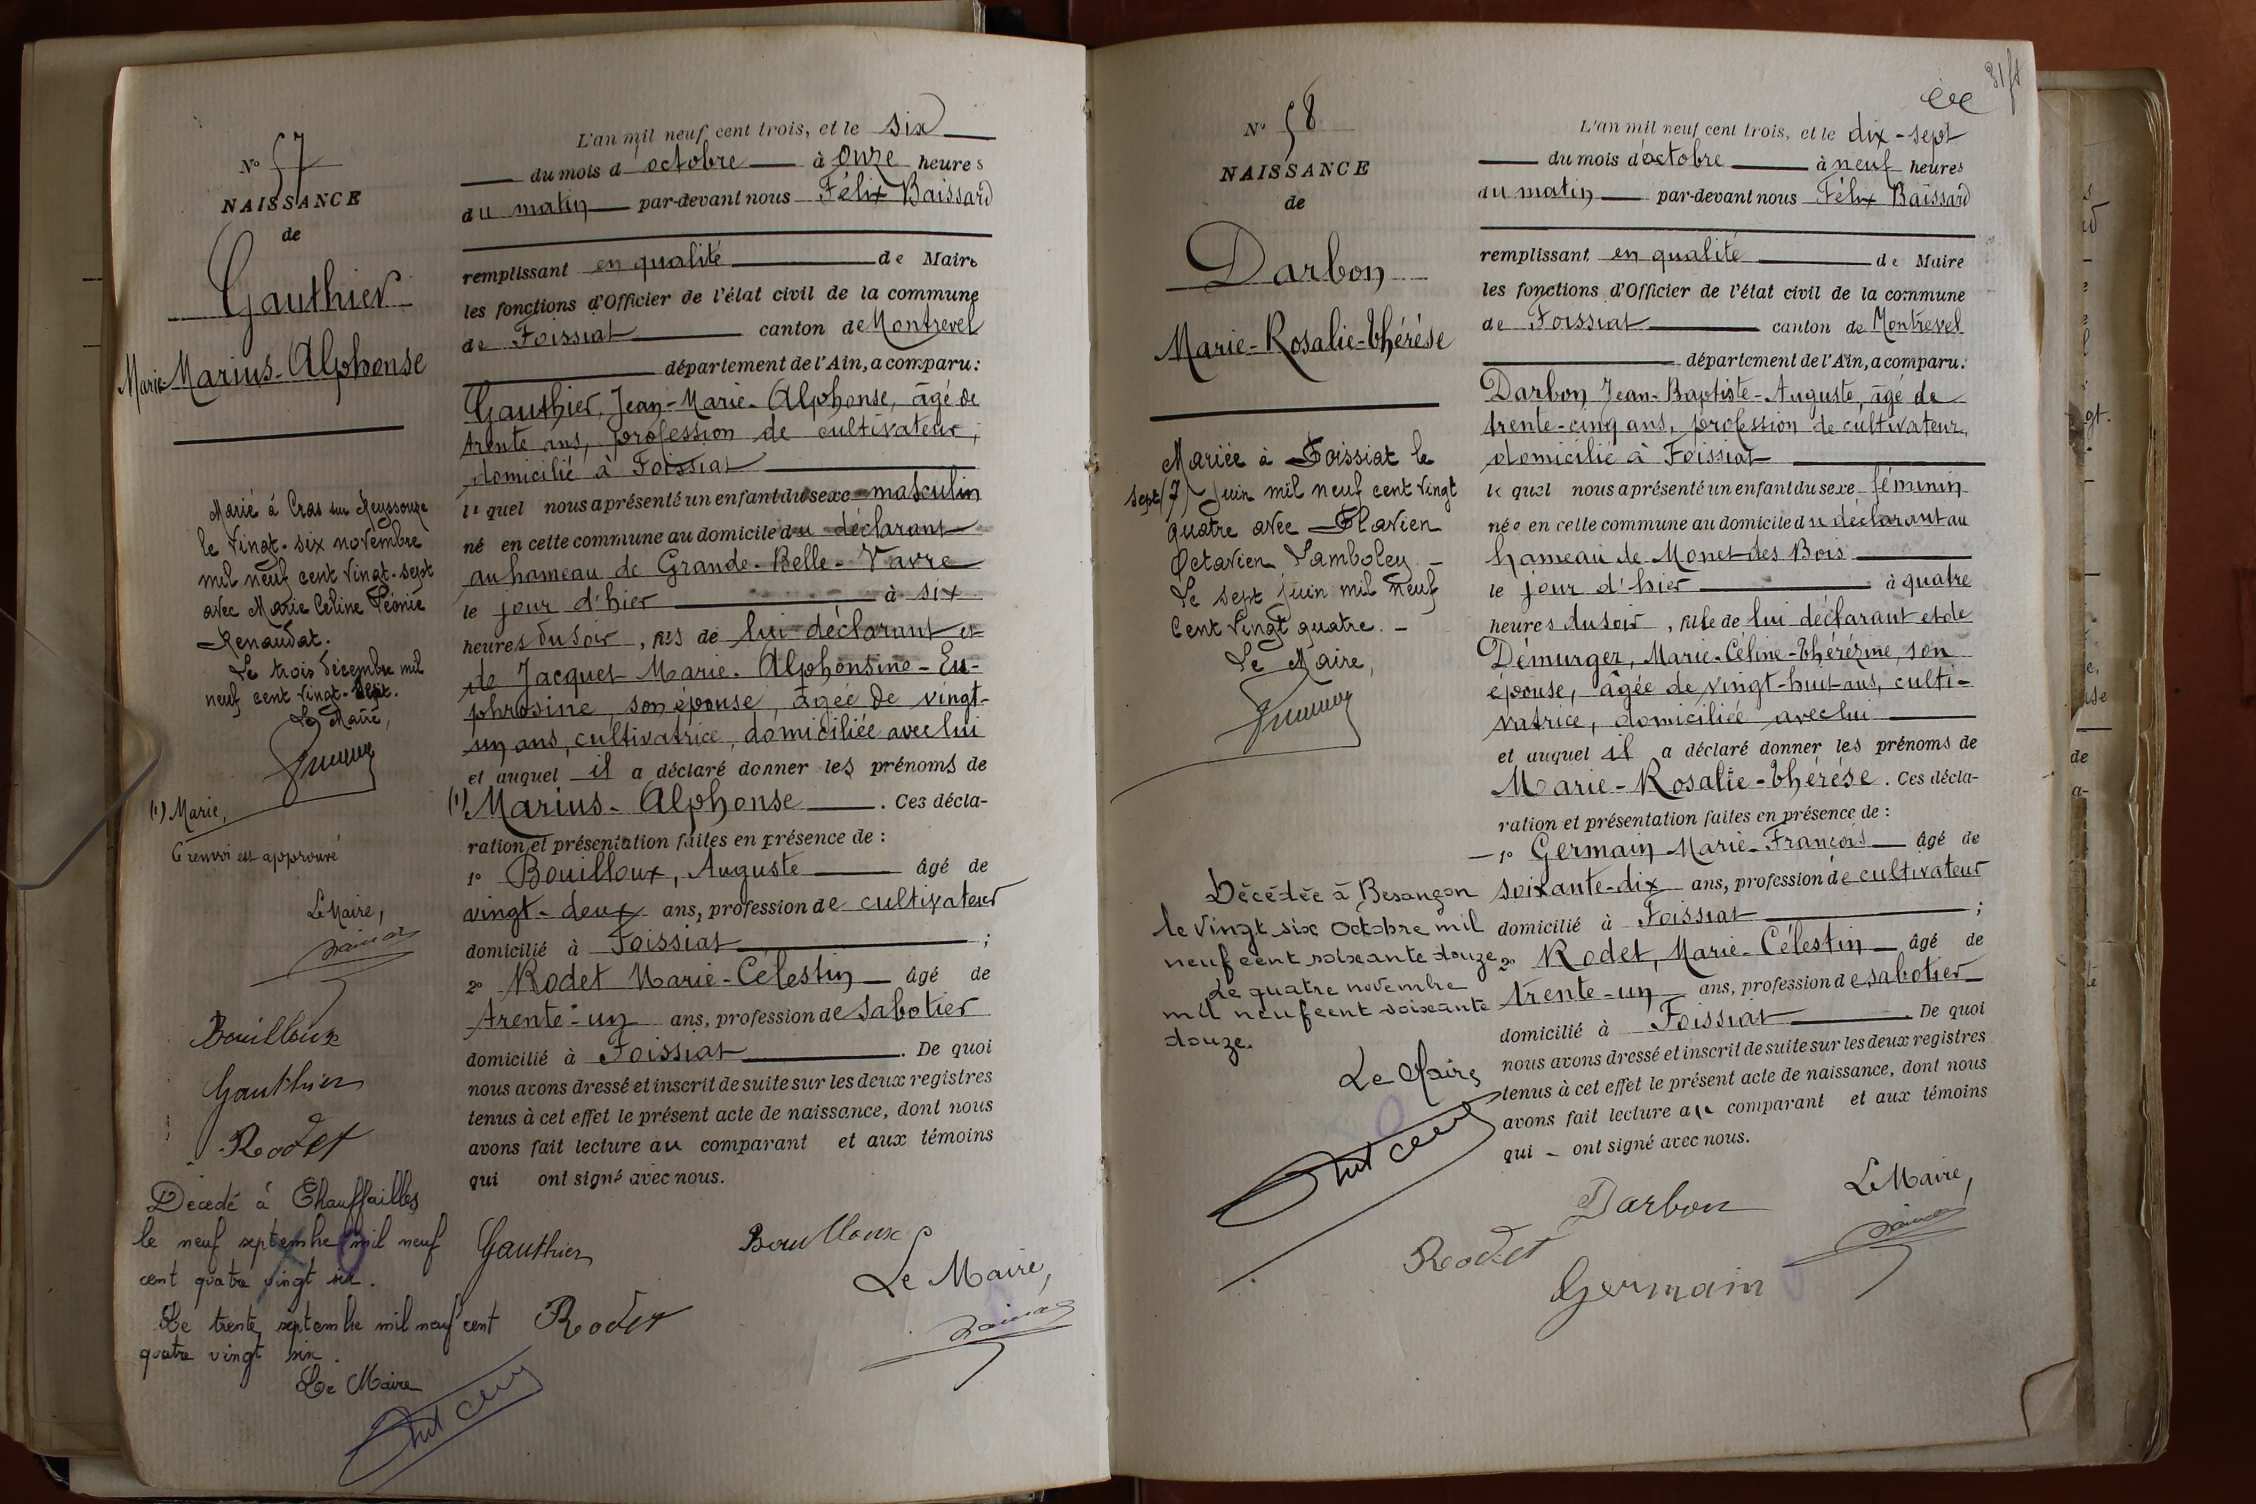 N° 57
NAISSANCE
de
Gauthier
Marie-Marius-Alphonse
Marié à Cras sur Reyssouze
le vingt-six novembre
mil neuf cent vingt-sept
avec Marie Céline Léonie
Renaudat.
Le trois décembre mil
neuf cent vingt-sept.
Le Maire,
(1) Marie,
Ce renvoi est approuvé
Le Maire,
Bouilloux
Gauthier
Rodet
Décédé à Chauffailles
le neuf septembre mil neuf
cent quatre vingt six.
Le trente septembre mil neuf cent
quatre vingt six.
Le Maire
L'an mil neuf cent trois, et le six
du mois d'octobre à onze heures
du matin par-devant nous Félix Baissard
remplissant en qualité de Maire
les fonctions d'Officier de l'état civil de la commune
de Foissiat canton de Montrevel
département de l'Ain, a comparu:
Gauthier, Jean-Marie-Alphonse, âgé de
trente ans, profession de cultivateur,
domicilié à Foissiat
lequel nous a présenté un enfant du sexe masculin
né en cette commune au domicile du déclarant
au hameau de Grande-Belle-Vavre
le jour d'hier à six
heures du soir, fils de lui déclarant et
de Jacquet Marie-Alphonsine-Eu-
phrosine, son épouse, âgée de vingt-
un ans, cultivatrice, domiciliée avec lui
et auquel il a déclaré donner les prénoms de
(1) Marius-Alphonse. Ces décla-
ration et présentation faites en présence de :
1° Bouilloux, Auguste âgé de
vingt-deux ans, profession de cultivateur
domicilié à Foissiat ;
2° Rodet Marie-Célestin âgé de
trente-un ans, profession de sabotier
domicilié à Foissiat. De quoi
nous avons dressé et inscrit de suite sur les deux registres
tenus à cet effet le présent acte de naissance, dont nous
avons fait lecture au comparant et aux témoins
qui ont signé avec nous.
Gauthier
Bouilloux
Le Maire,
Rodet
N° 58
NAISSANCE
de
Darbon
Marie-Rosalie-Thérèse
Mariée à Foissiat le
sept (7) Juin mil neuf cent vingt
quatre avec Flavien
Octavien Lamboley -
Le sept juin mil neuf
cent vingt quatre. -
Le Maire,
Décédée à Besançon
le vingt six Octobre mil
neuf cent soixante douze
Le quatre novembre
mil neuf cent soixante
douze.
Le Maire
L'an mil neuf cent trois, et le dix-sept
du mois d'octobre à neuf heures
du matin par-devant nous Félix Baissard
remplissant en qualité de Maire
les fonctions d'Officier de l'état civil de la commune
de Foissiat canton de Montrevel
département de l'Ain, a comparu:
Darbon Jean-Baptiste-Auguste, âgé de
trente-cinq ans, profession de cultivateur,
domicilié à Foissiat
lequel nous a présenté un enfant du sexe féminin
née en cette commune au domicile du déclarant au
hameau de Monet des Bois
le jour d'hier à quatre
heures du soir, fille de lui déclarant et de
Démurger, Marie-Céline-Thérézine, son
épouse, âgée de vingt-huit ans, culti-
vatrice, domiciliée avec lui
et auquel il a déclaré donner les prénoms de
Marie-Rosalie-Thérèse. Ces décla-
ration et présentation faites en présence de :
1° Germain Marie-François âgé de
soixante-dix ans, profession de cultivateur
domicilié à Foissiat ;
2° Rodet, Marie-Célestin âgé de
trente-un ans, profession de sabotier
domicilié à Foissiat. De quoi
nous avons dressé et inscrit de suite sur les deux registres
tenus à cet effet le présent acte de naissance, dont nous
avons fait lecture au comparant et aux témoins
qui ont signé avec nous.
Darbon
Le Maire,
Rodet
Germain